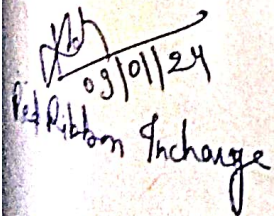 09/01/24
Red Ribbon Incharge